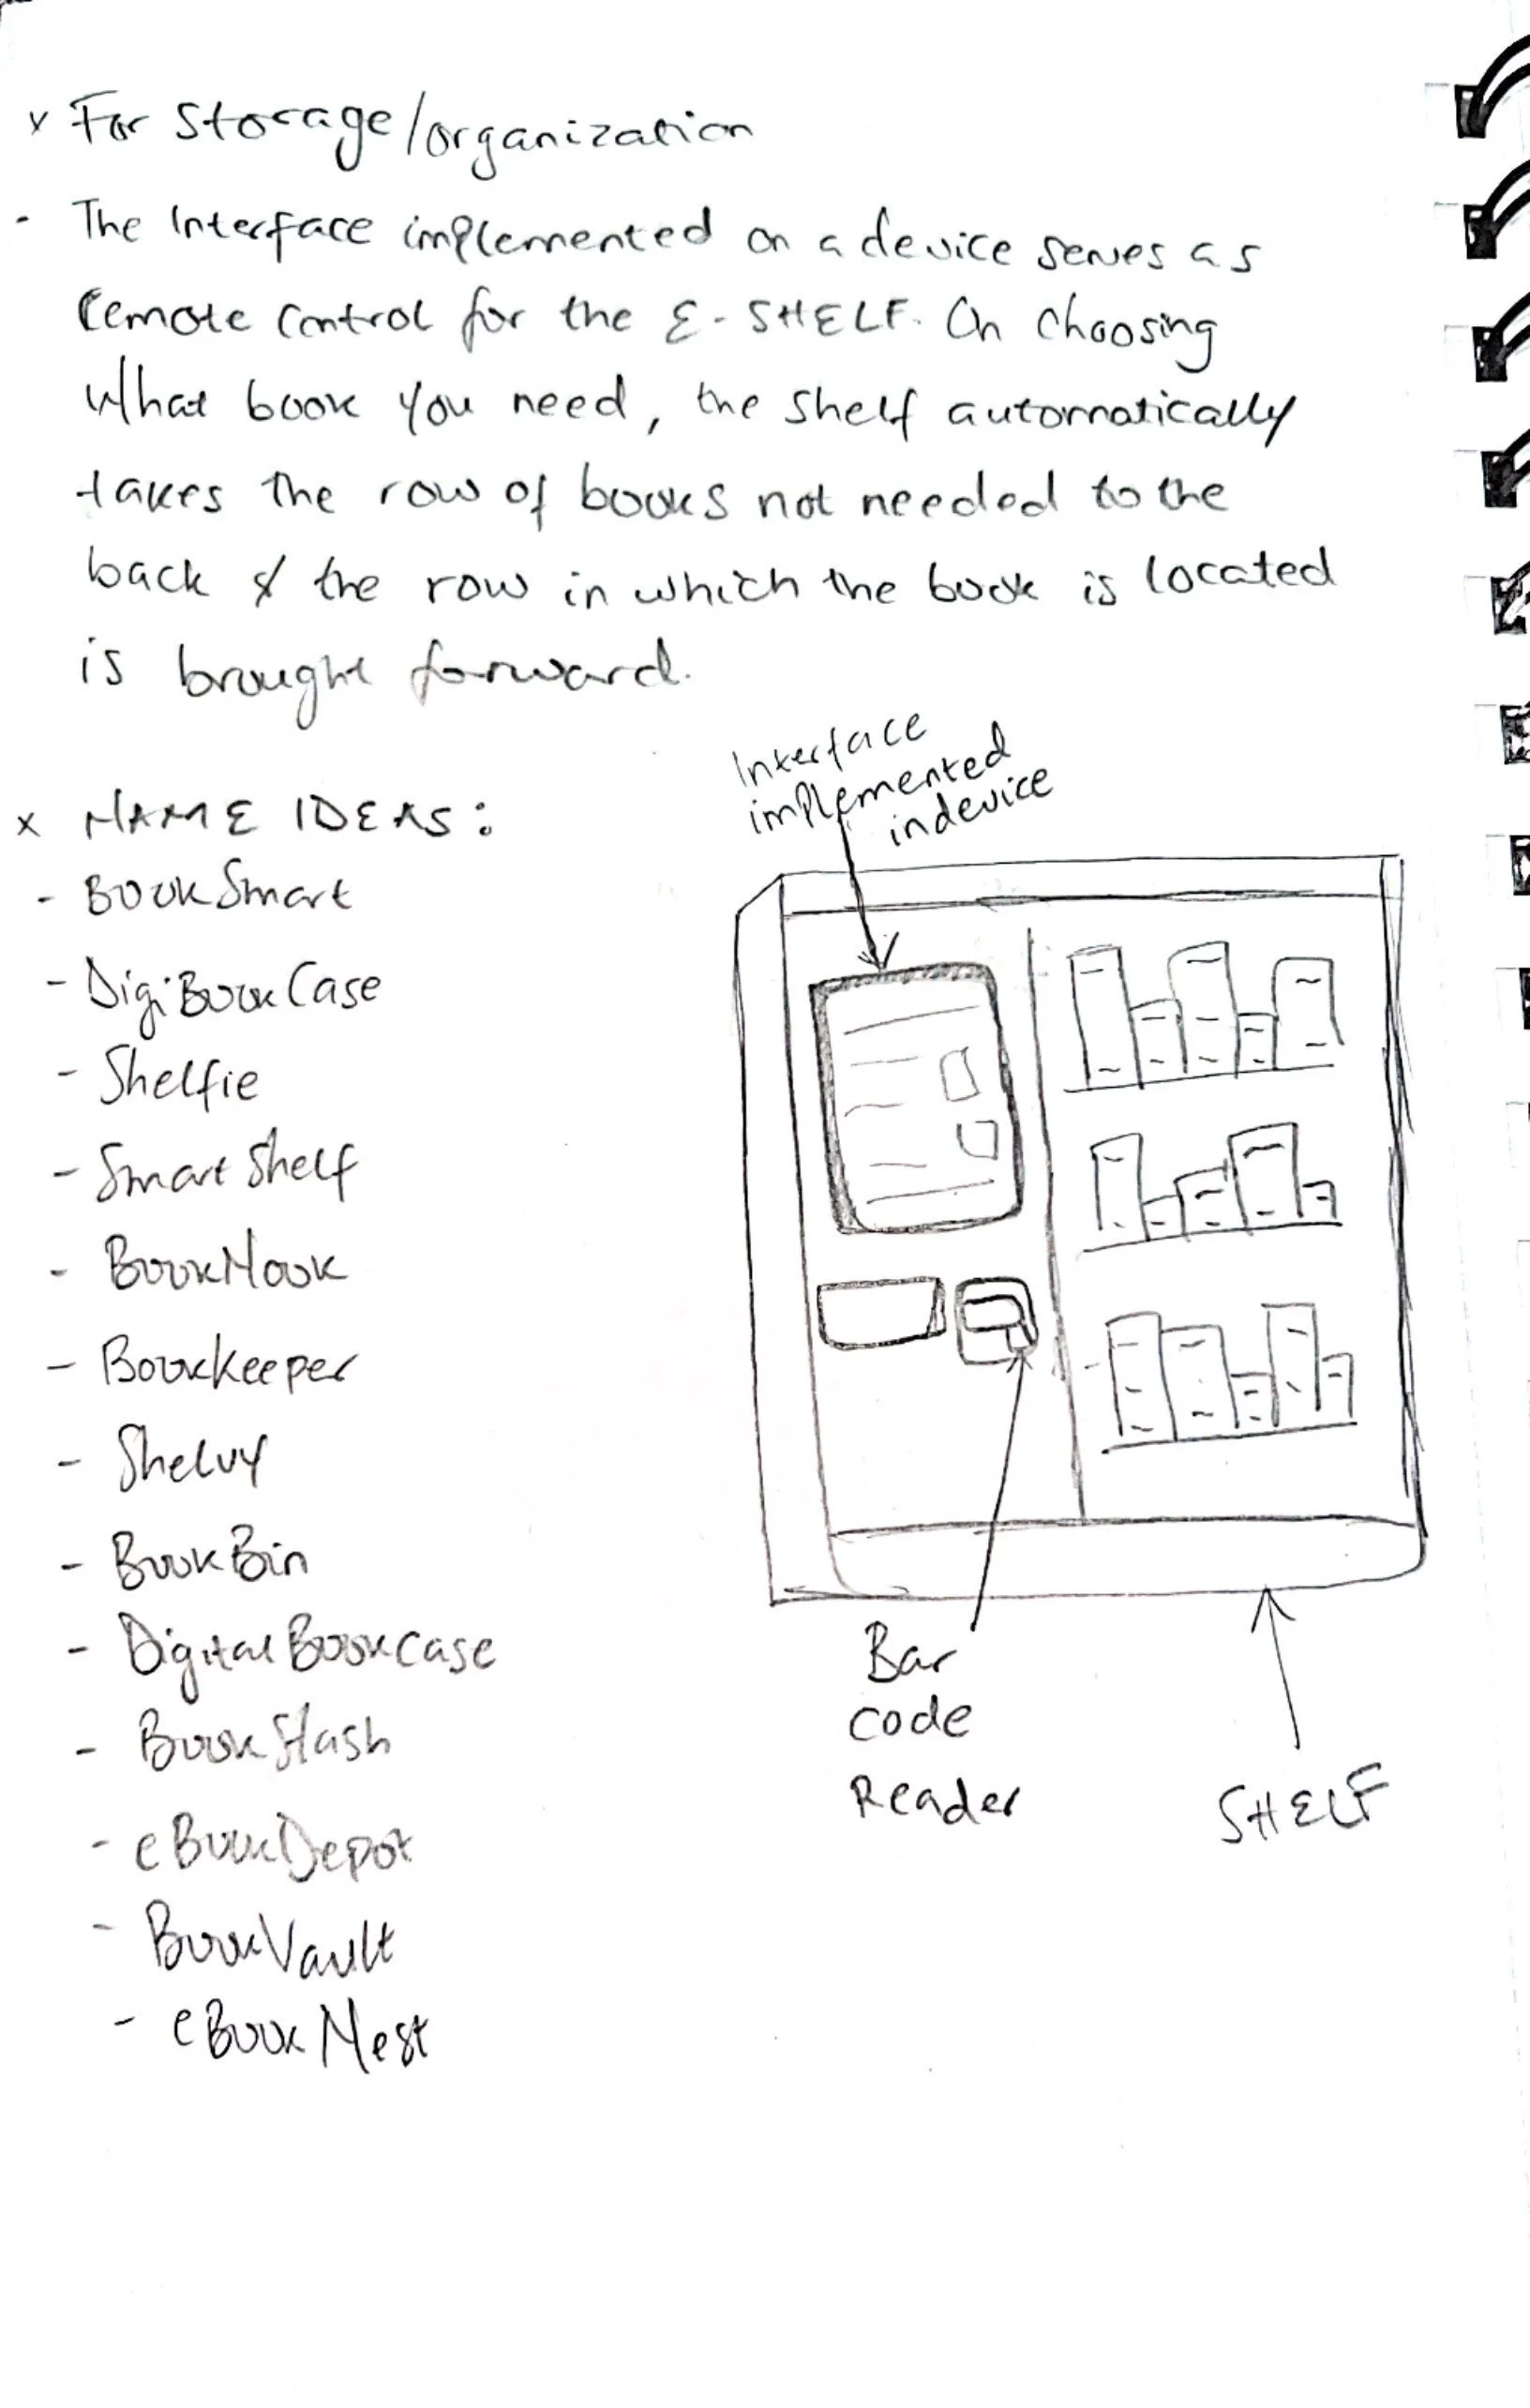 x For Storage/organization
- The Interface implemented on a device serves as
remote control for the E-SHELF. On choosing
what book you need, the shelf automatically
takes the row of books not needed to the
back & the row in which the book is located
is brought forward.
Interface
implemented
in device
x NAME IDEAS:
- BookSmart
- DigiBookCase
- Shelfie
- Smart Shelf
- BookNook
- Bookkeeper
- Shelvy
- BookBin
- DigitalBookcase
- BookStash
- eBookDepot
- BookVault
- eBookNest
Bar
code
Reader
SHELF